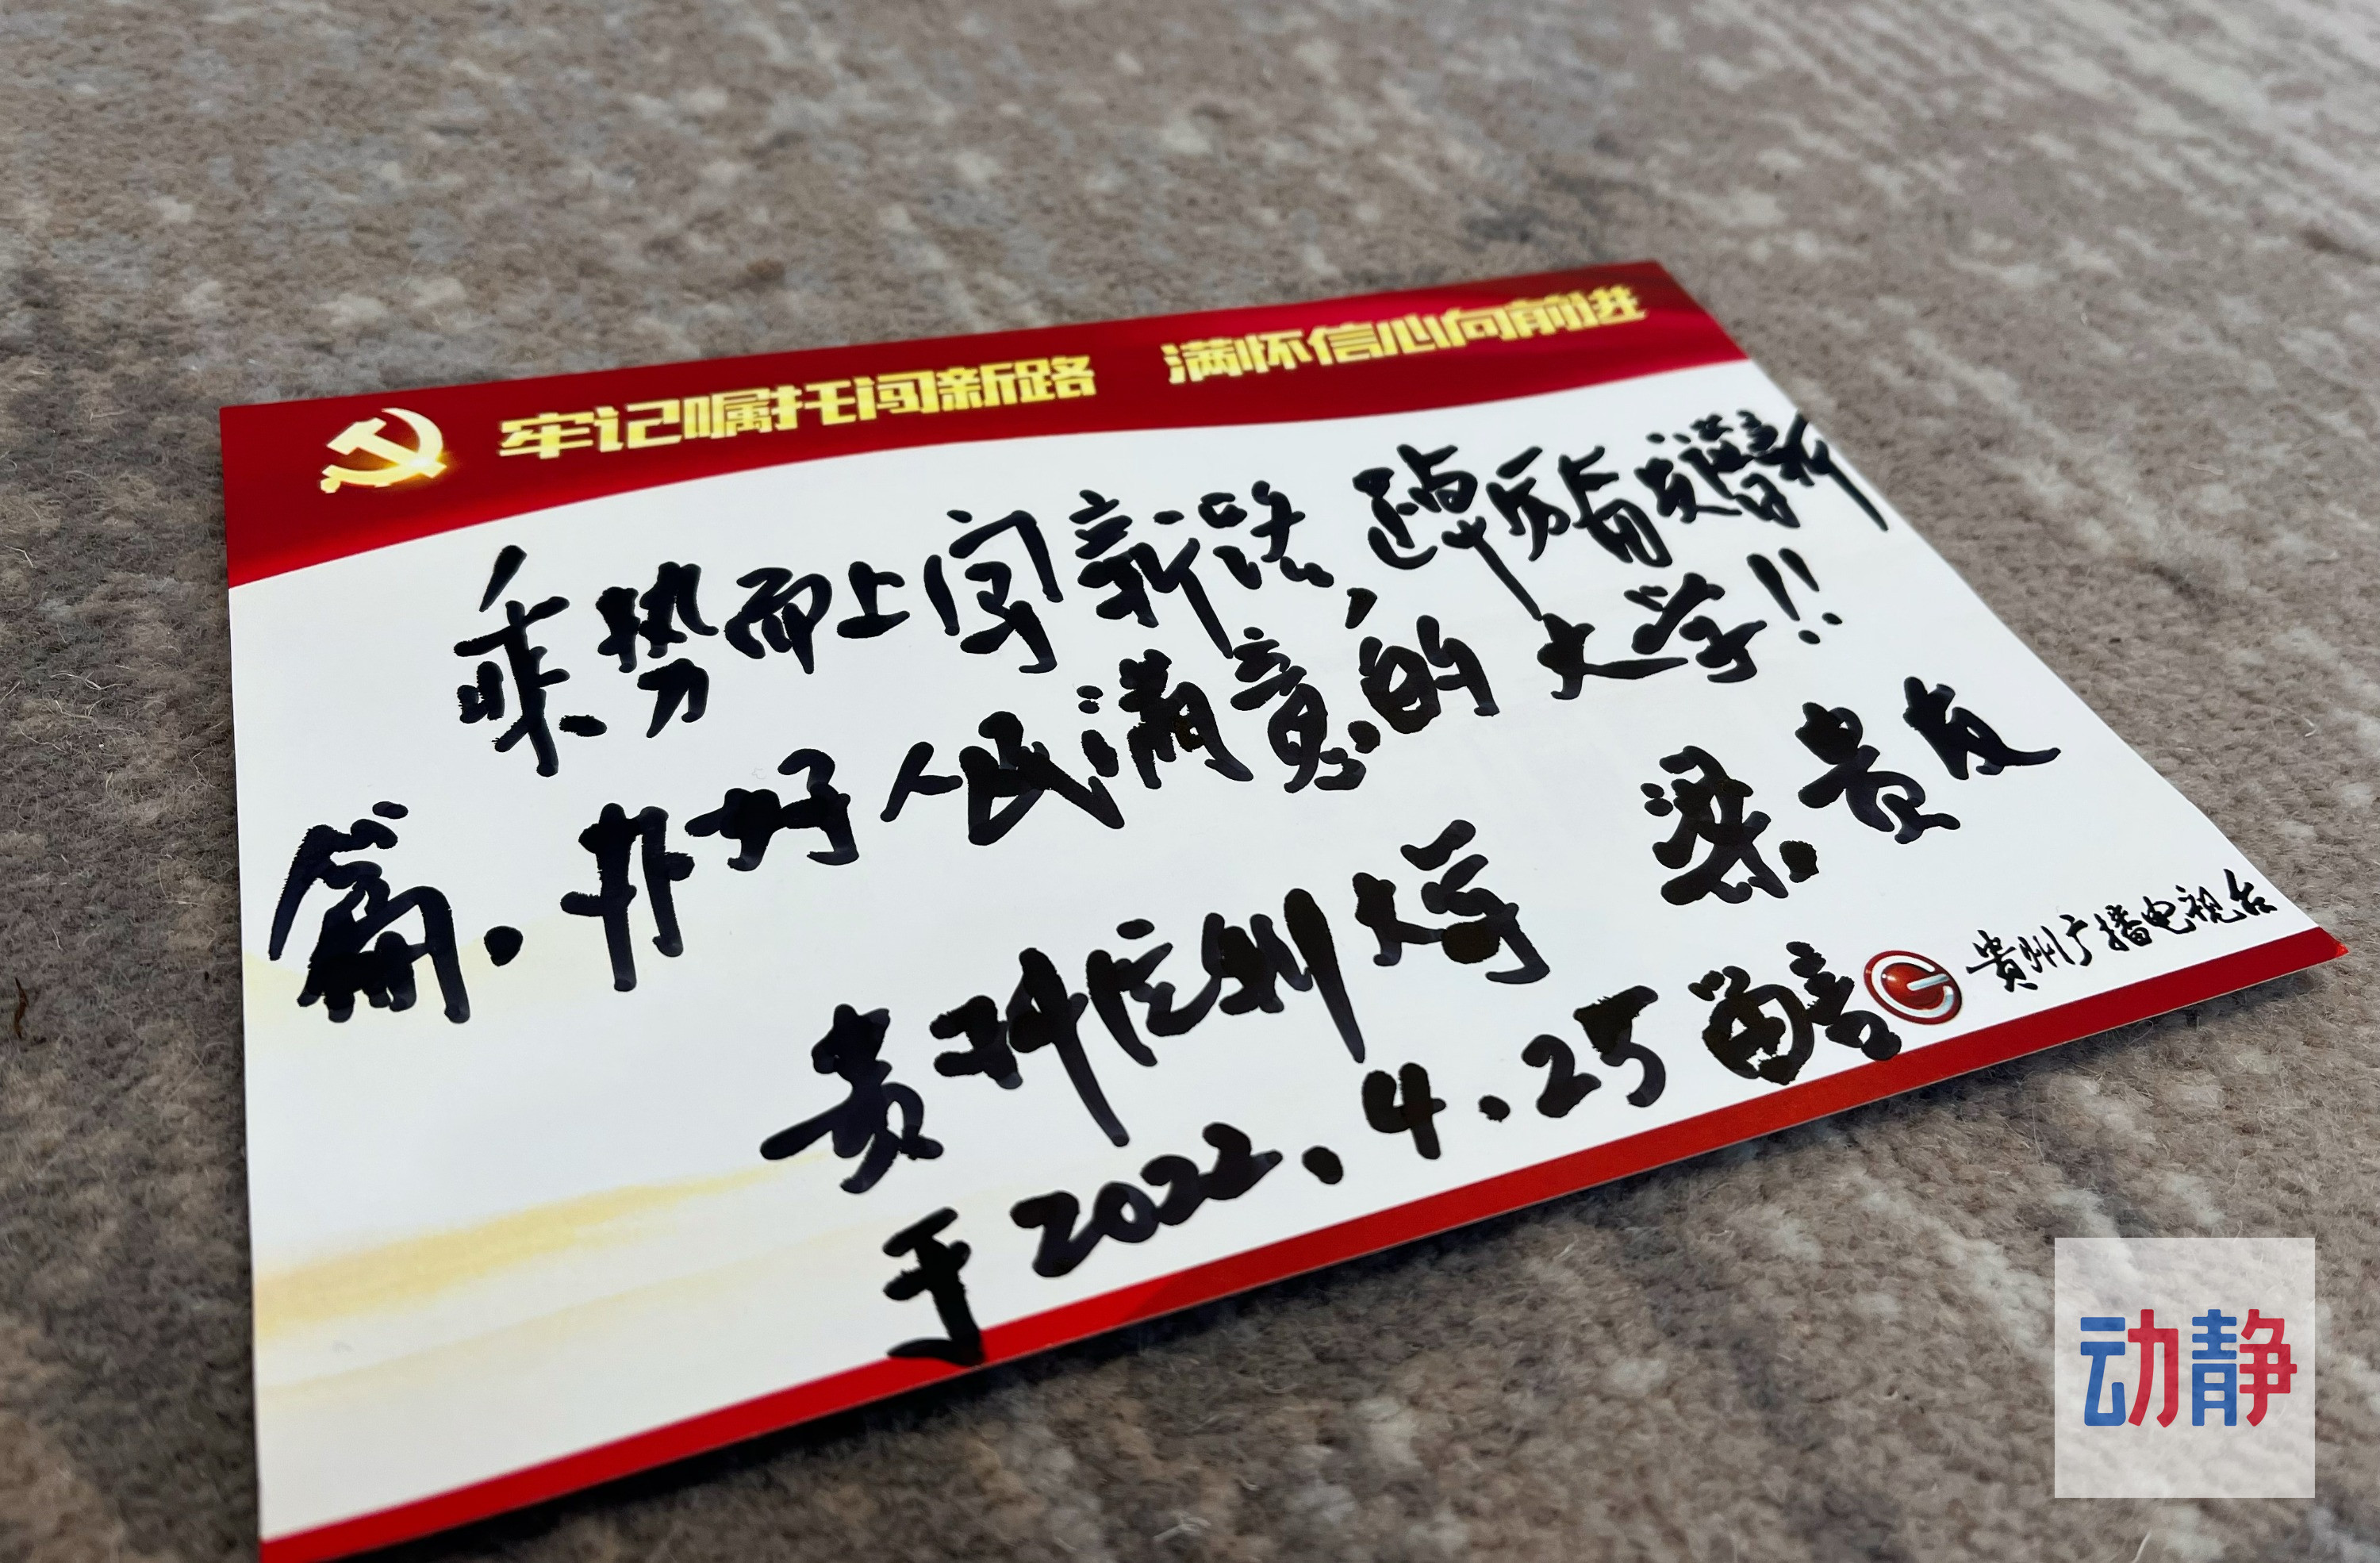 牢记嘱托闯新路 满怀信心向前进
乘势而上闯新路,踔厉奋发谱新
篇.办好人民满意的大学!!
贵州应用大学 梁贵友
于2022.4.25留言
贵州广播电视台
动静